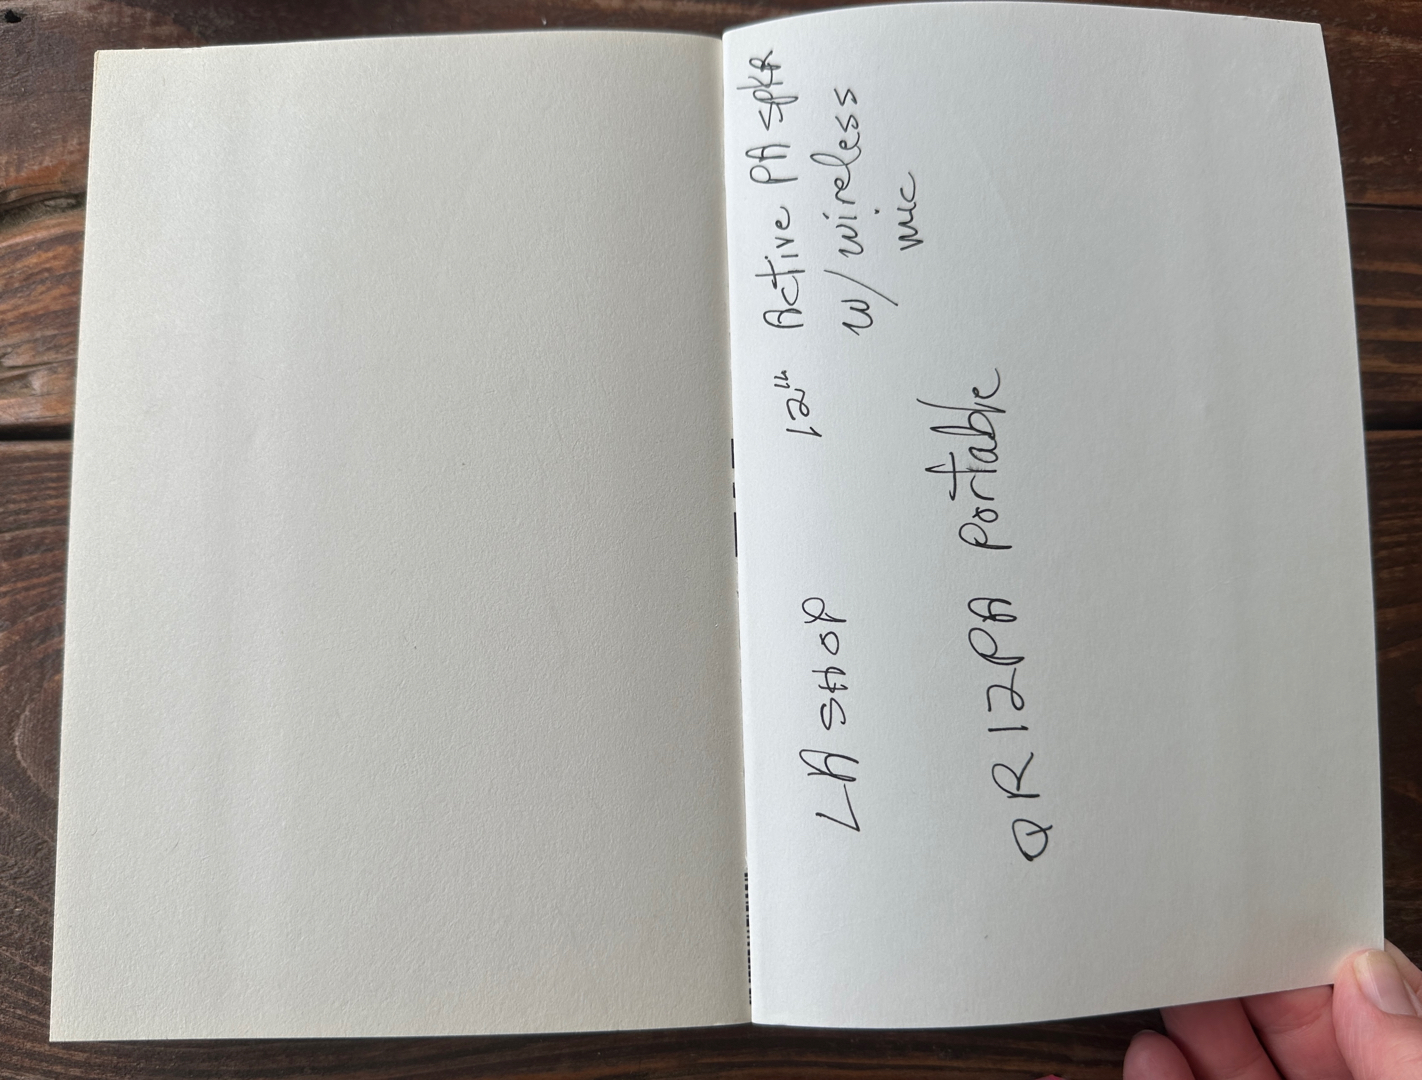 LA SHOP 12th Active PA spkr
w/ wireless
mic
QR12PA portable